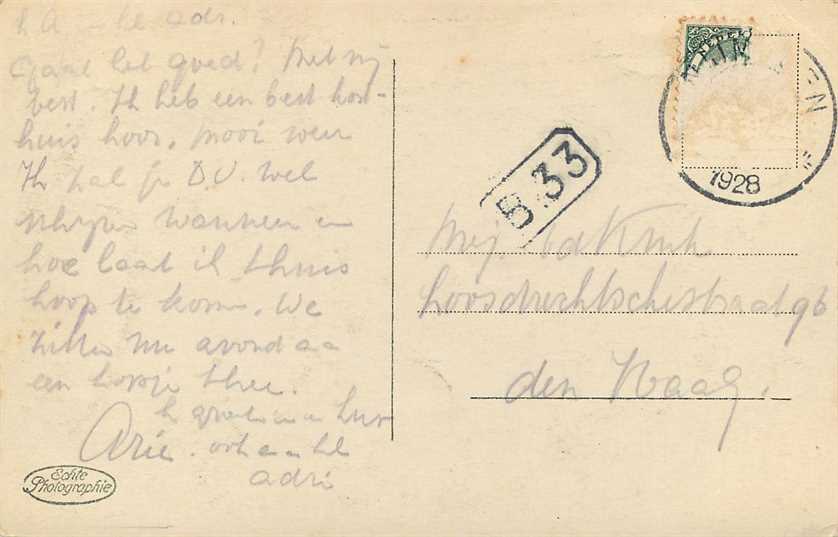 adr.
Gaat het goed? Met mij
best. Ik heb een best kost-
huis hoor, mooi weer
Ik zal je D.V. wel
schrijven wanneer en
hoe laat ik thuis
hoop te kom. We
zitten nu avond aa
een kopje thee.
Arie. ook aan
adri
Echte
Photographie
NEDER
EN
1928
B.33
Mej.
Loosdrechtschestraat 96
den Haag.